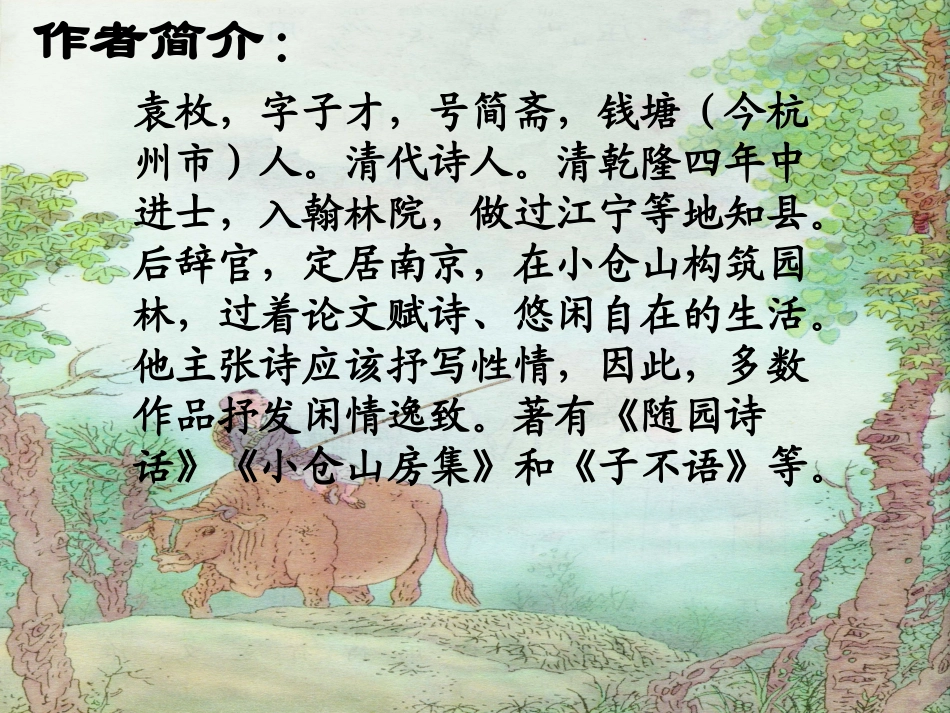 作者简介：
袁枚，字子才，号简斋，钱塘（今杭
州市）人。清代诗人。清乾隆四年中
进士，入翰林院，做过江宁等地知县。
后辞官，定居南京，在小仓山构筑园
林，过着论文赋诗、悠闲自在的生活。
他主张诗应该抒写性情，因此，多数
作品抒发闲情逸致。著有《随园诗
话》《小仓山房集》和《子不语》等。